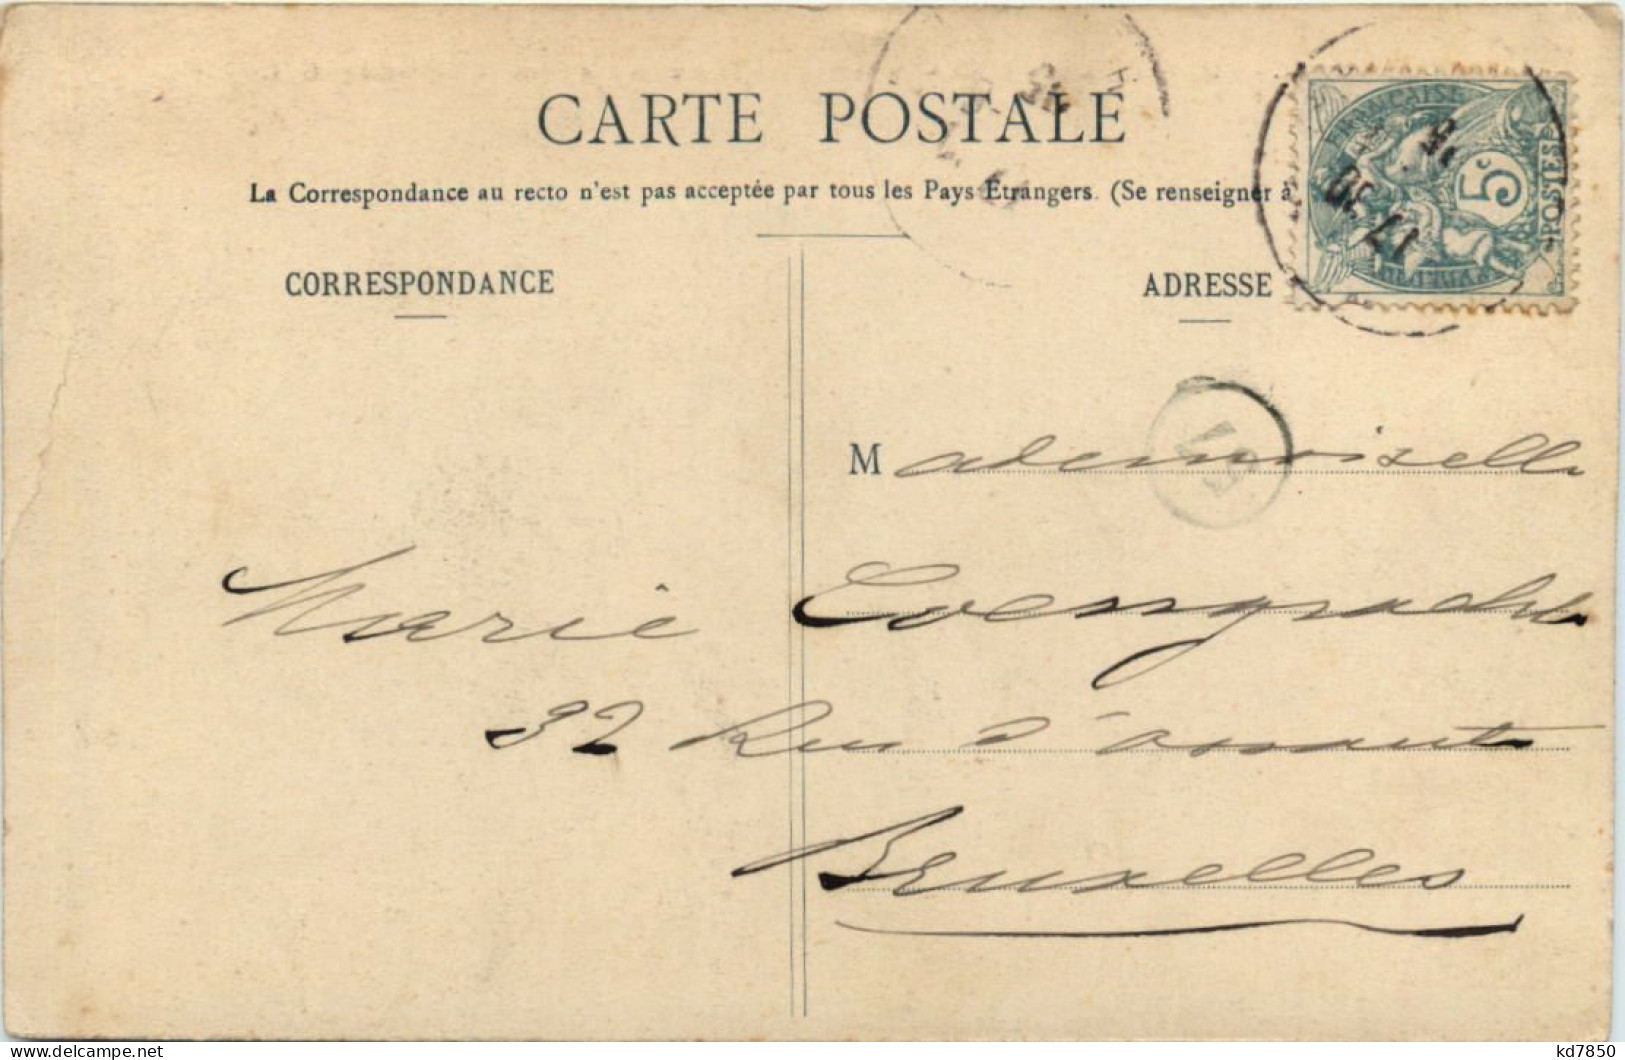 CARTE POSTALE
La Correspondance au recto n'est pas acceptée par tous les Pays Étrangers. (Se renseigner à
CORRESPONDANCE
ADRESSE
FRANÇAISE
5c
POSTES
17 30
Mademoiselle
Marie
32 Rue d'
Bruxelles
delcampe.net
kd7850